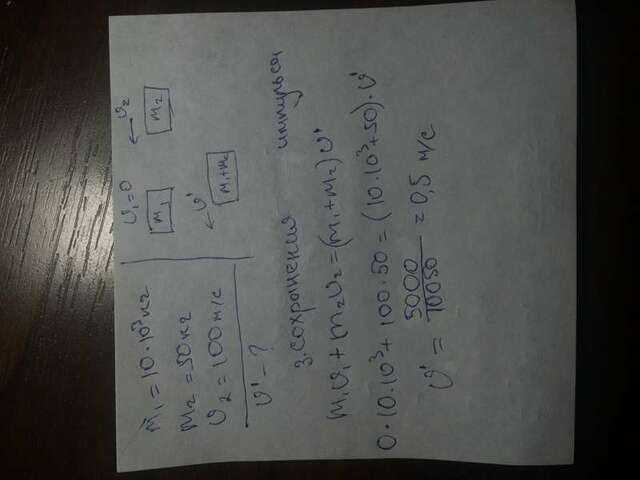 m₁ = 10·10³ кг
m₂ = 50 кг
υ₂ = 100 м/с
υ' - ?
υ₁=0
υ₂
m₁
m₂
υ'
m₁+m₂
З. сохранения импульса
m₁υ₁ + m₂υ₂ = (m₁ + m₂) υ'
0·10·10³ + 100·50 = (10·10³ + 50)·υ'
υ' = 5000/10050 = 0,5 м/с